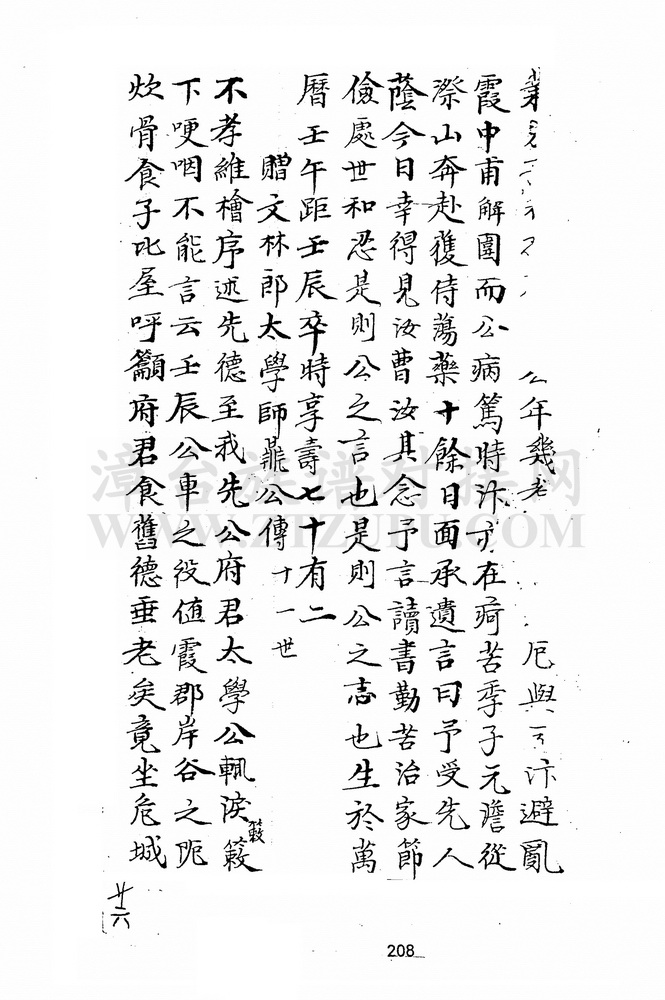 公年幾老 厄與 汴避亂
霞中甫解圍而公病篤時汴亦在疴苦季子元澹從
漈山奔赴獲侍蕩藥十餘日面承遺言曰予受先人
蔭今日幸得見汝曹汝其念予言讀書勤苦治家節
儉處世和忍是則公之言也是則公之志也生於萬
曆壬午距壬辰卒時享壽七十有二
贈文林郎太學師蕜公傳十一世
不孝維檜序述先德至我先公府君太學公輒淚簌簌
下哽咽不能言云壬辰公車之役值霞郡岸谷之阨
炊骨食子比屋呼籲府君食舊德垂老矣竟坐危城
廿六
208
漳台族谱对接网
WWW.ZTZUPU.COM